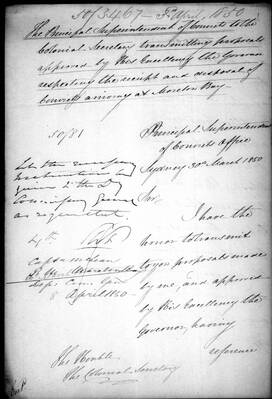 50/3467 - 5th April 1850
The Principal Superintendent of Convicts to the
Colonial Secretary transmitting proposals
approved by His Excellency the Governor
respecting the receipt and disposal of
Convicts arriving at Moreton Bay.
50/81
Principal Superintendent
of Convicts Office
Sydney 30th March 1850
Let the necessary
instructions be
given to the
Commissary General
as requested.
Sir,
I have the
honor to transmit
to you proposals made
by me, and approved
by His Excellency the
Governor, having
reference
4th
Captn
8 April 1850
The Honble
The Colonial Secretary